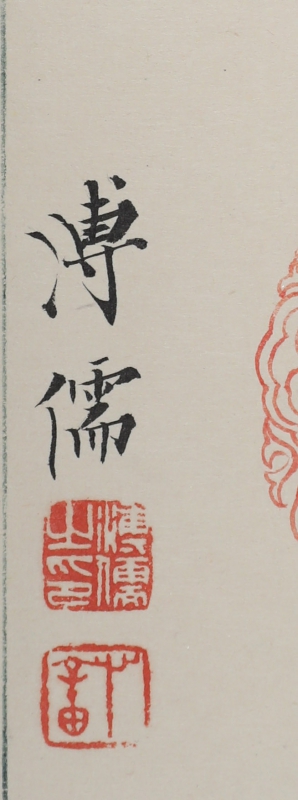 溥儒
溥儒之印